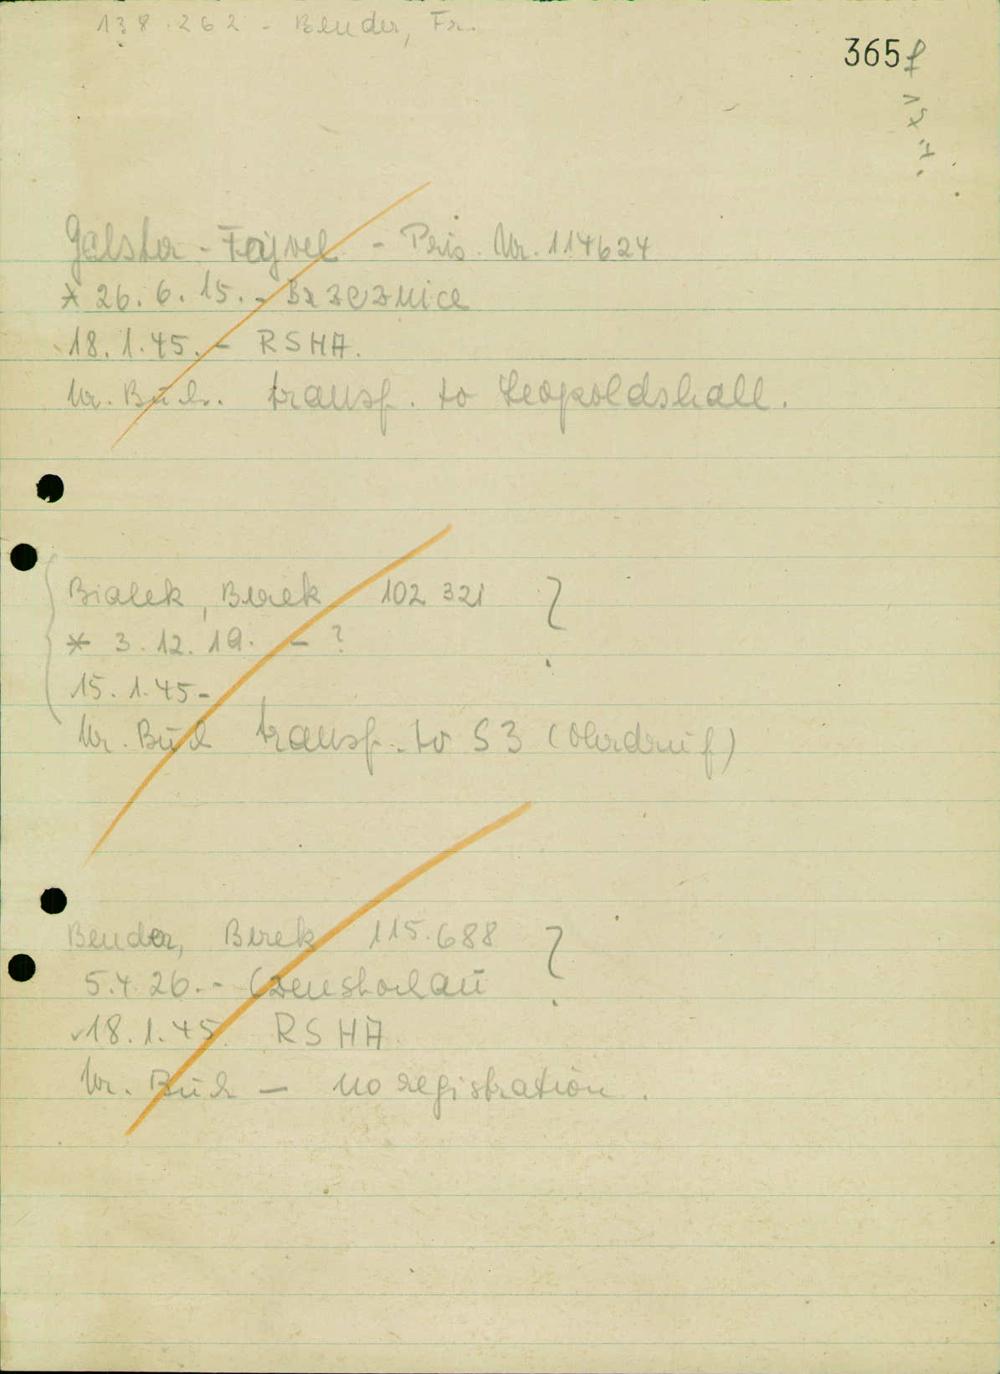 138.262 - Bender, Fr.
365 f
Galster - Fajvel - Pris. Nr. 114624
* 26.6.15. - Brzeznice
18.1.45. - RSHA.
Nr. Buch. transf. to Leopoldshall.
Bialek, Berek 102 321 ?
* 3.12.19. - ?
15.1.45-
Nr. Buch transf. to S3 (Ohrdruf)
Bender, Berek 115.688 ?
5.4.26. - Czenstochau
18.1.45. RSHA
Nr. Buch - no registration.